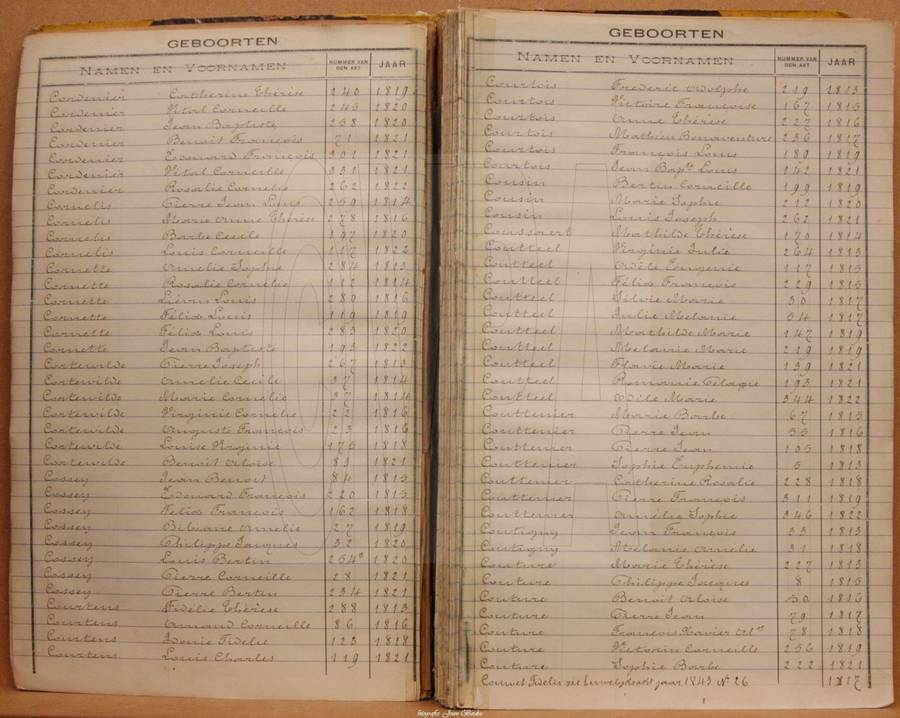 GEBOORTEN
NAMEN EN VOORNAMEN NUMMER VAN DEN AKT JAAR
Cordenier Catherine Thérèse 240 1819
Cordenier Vital Corneille 245 1820
Cordenier Jean Baptiste 258 1820
Cordenier Benoit François 71 1821
Cordenier Edouard François 301 1821
Cordenier Vital Corneille 331 1821
Cordenier Rosalie Cornelie 262 1822
Cornelis Pierre Jean Louis 259 1814
Cornelis Marie Anne Thérèse 278 1816
Cornelis Barbe Cecile 197 1820
Cornelis Louis Corneille 117 1822
Cornette Amelie Sophie 284 1813
Cornette Rosalie Cornelie 112 1814
Cornette Liévin Louis 280 1816
Cornette Félix Louis 119 1819
Cornette Félix Louis 283 1820
Cornette Jean Baptiste 193 1822
Cortewilde Pierre Joseph 267 1813
Cortewilde Amelie Cecile 37 1814
Cortewilde Marie Cornelie 37 1814
Cortewilde Virginie Cornelie 22 1816
Cortewilde Auguste François 23 1816
Cortewilde Louise Virginie 175 1818
Cortewilde Benoit Aloise 81 1821
Cossey Jean Benoit 84 1813
Cossey Edouard François 220 1815
Cossey Felix François 162 1818
Cossey Bibiane Amelie 27 1819
Cossey Philippe Jacques 32 1820
Cossey Louis Bertin 254 1820
Cossey Pierre Corneille 28 1821
Cossey Pierre Bertin 234 1821
Courtens Fidélie Thérèse 288 1813
Courtens Armand Corneille 86 1816
Courtens Idonie Fidelie 123 1818
Courtens Louis Charles 119 1821
GEBOORTEN
NAMEN EN VOORNAMEN NUMMER VAN DEN AKT JAAR
Courtois Frederic Adolphe 219 1813
Courtois Victoire Françoise 167 1815
Courtois Anne Thérèse 227 1816
Courtois Mathieu Bonaventure 236 1817
Courtois François Louis 189 1819
Courtois Jean Bapte Louis 142 1821
Cousin Bertin Corneille 199 1819
Cousin Marie Sophie 212 1820
Cousin Louis Joseph 262 1821
Coussaert Mathilde Thérèse 170 1814
Coutteel Virginie Julie 264 1813
Coutteel Adèle Eugenie 117 1815
Coutteel Félix François 229 1815
Coutteel Silvie Marie 30 1817
Coutteel Julie Melanie 34 1817
Coutteel Mathilde Marie 147 1819
Coutteel Melanie Marie 219 1819
Coutteel Flavie Marie 139 1821
Coutteel Romanie Pelagie 193 1821
Coutteel Odile Marie 344 1822
Couttenier Marie Barbe 67 1815
Couttenier Pierre Jean 33 1816
Couttenier Pierre Jean 105 1818
Couttenier Sophie Euphemie 5 1813
Couttenier Catherine Rosalie 228 1818
Couttenier Pierre François 311 1819
Couttenier Amélie Sophie 346 1822
Coutigny Jean François 33 1813
Coutigny Mélanie Amelie 31 1818
Couture Marie Thérèse 227 1813
Couture Philippe Jacques 8 1815
Couture Benoit Aloise 30 1816
Couture Pierre Jean 79 1817
Couture François Xavier 78 1818
Couture Victorin Corneille 256 1819
Couture Sophie Barbe 222 1821
Couwet Fidelis zie huwelijksakt jaar 1843 N° 26 1817